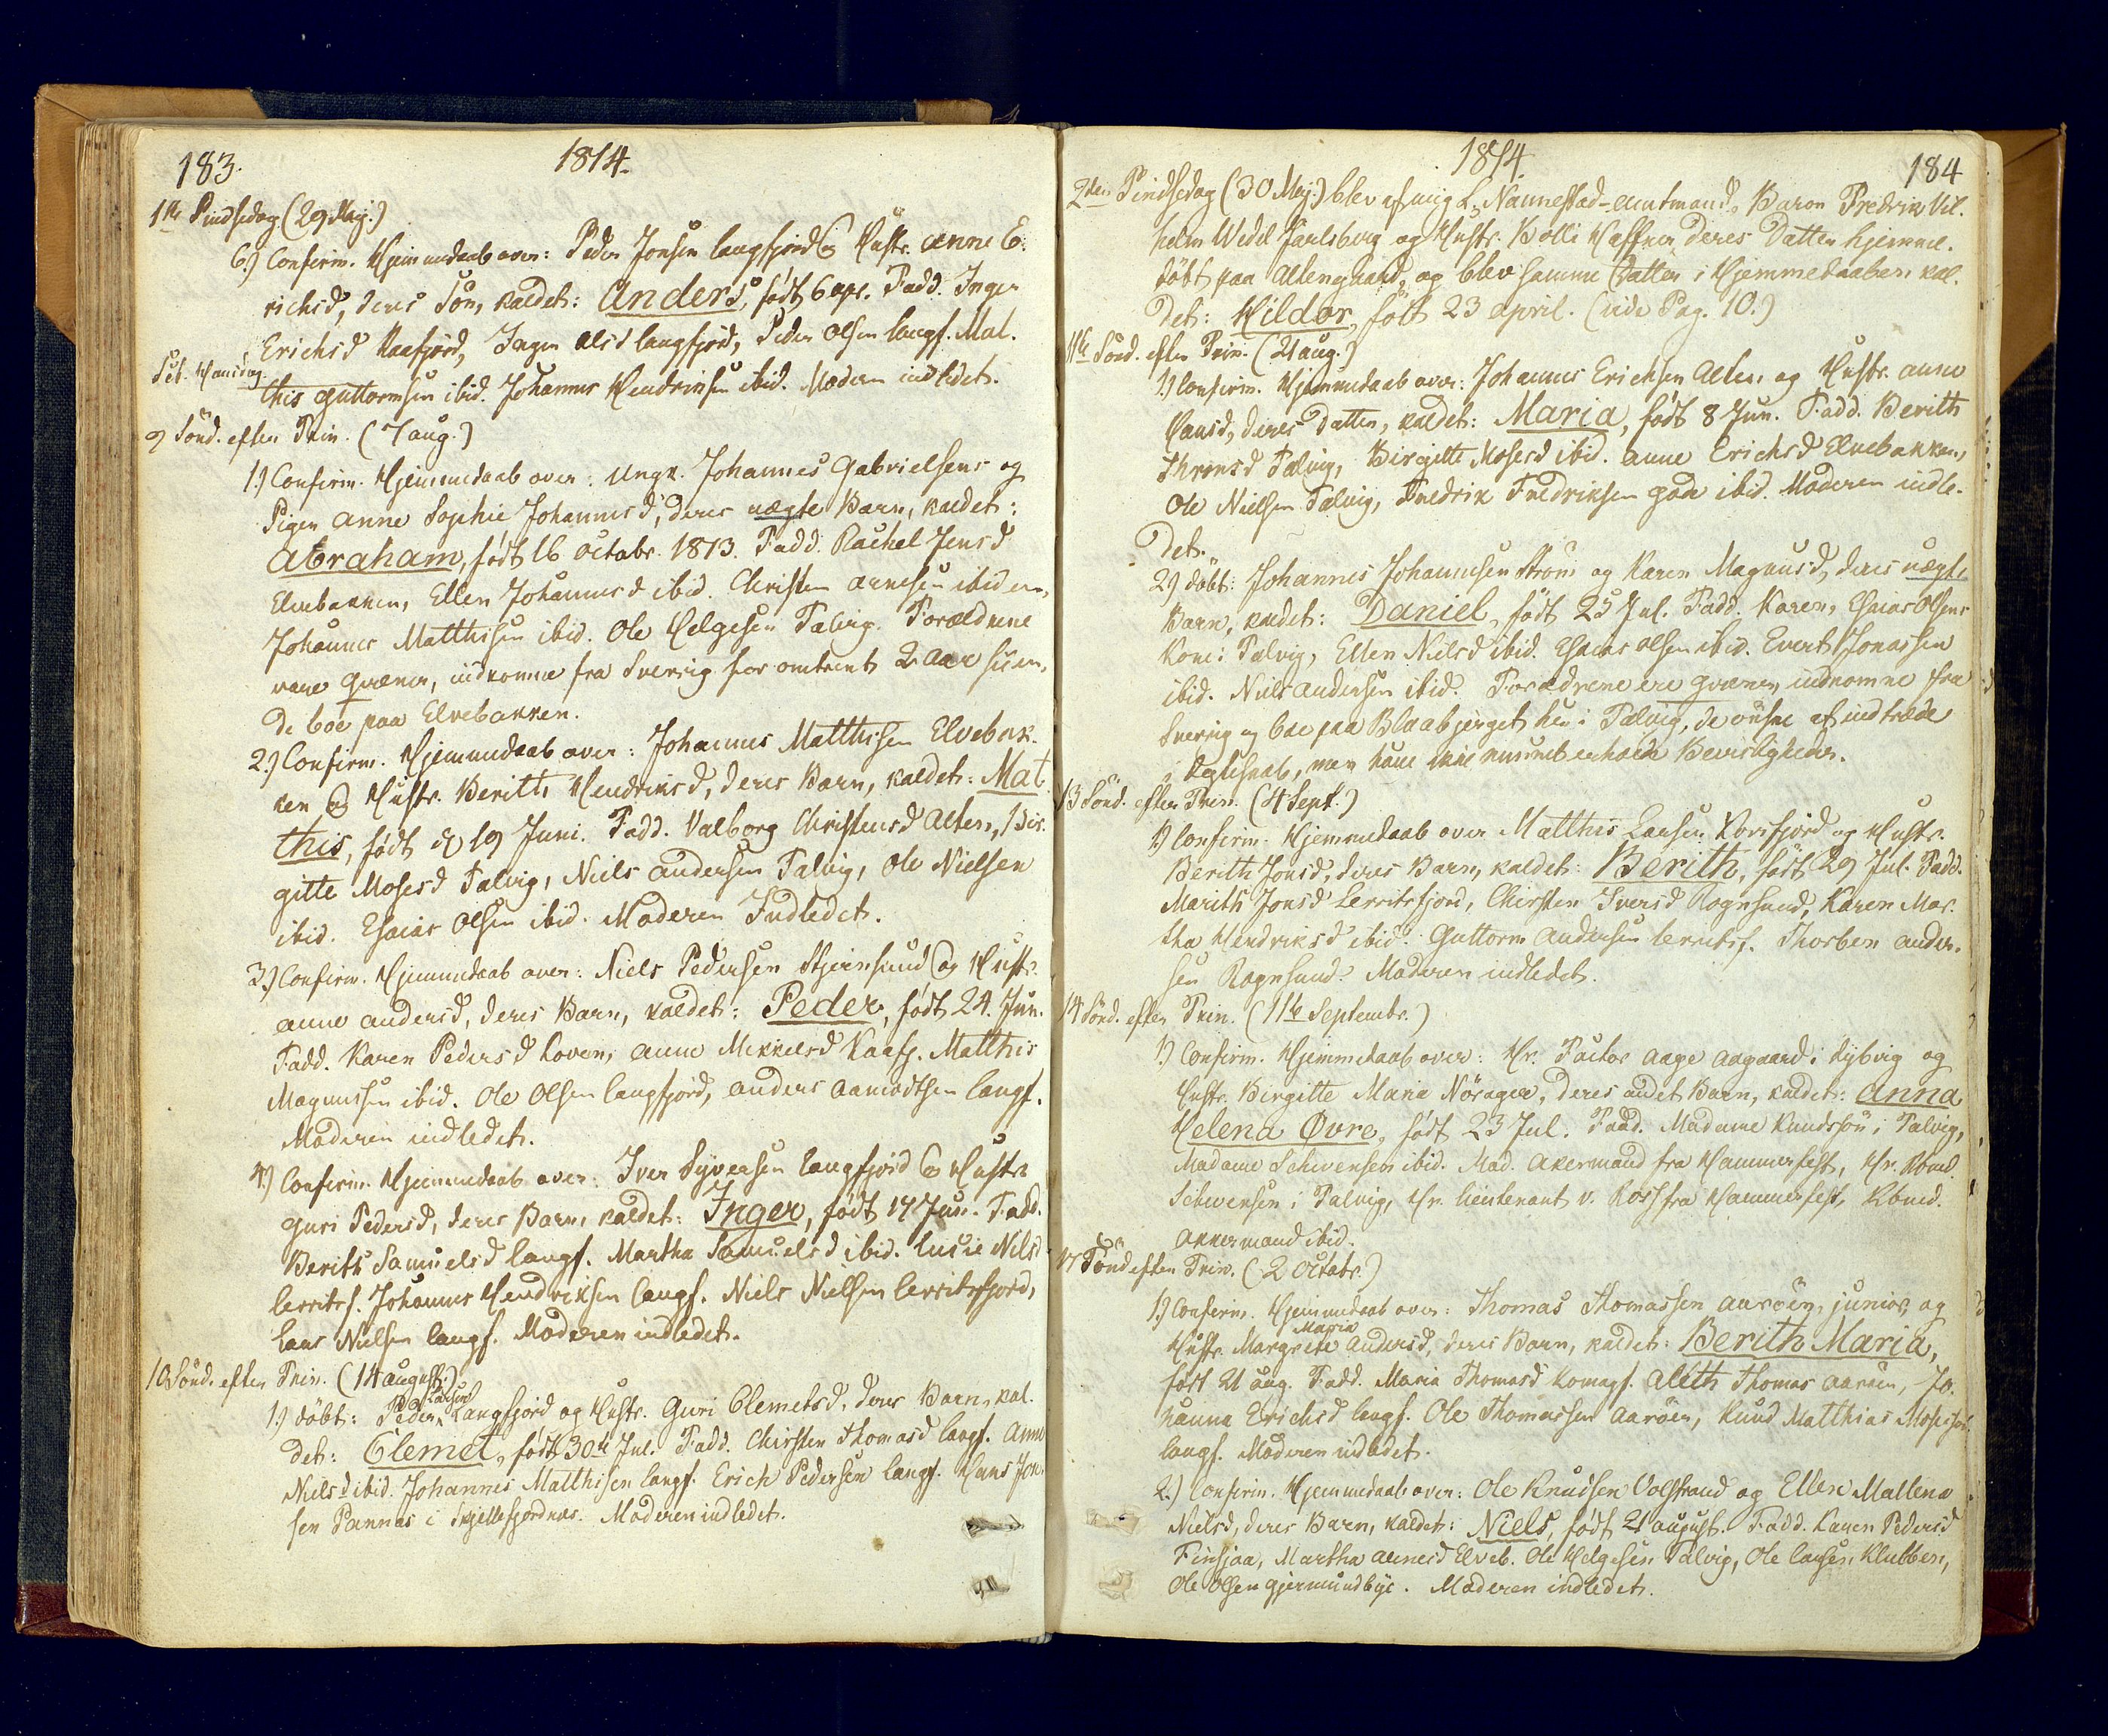 183.
1814.
1ste Pindsedag (29 Maj.)
6.) Confirm. Hjemmedaab over: Peder Jonsen Langfjord og Hustr. Anne E-
richsd, deres Søn, kaldet: Anders, født 6 apr. Fadd. Inger
Erichsd Kaafjord, Inger Olsd Langfjord, Peder Olsen Langf. Mat-
this Guttormsen ibid. Johannes Hendriksen ibid. Moderen indledet.
9 Sønd. efter Trin. (7 aug.)
1.) Confirm. Hjemmedaab over: Ungk. Johannes Gabrielsen og
Pigen Anne Sophie Johannesd, deres uægte Barn, kaldet:
Abraham, født 16 Octobr. 1813. Fadd. Rachel Jensd
Elvebakken, Ellen Johannesd ibid. Christen Arnesen ibidem,
Johannes Matthisen ibid. Ole Helgesen Talvig. Forældrene
vare Qvæner, indkomne fra Sverrig for omtrent 2 Aar siden,
de boe paa Elvebakken.
2.) Confirm. Hjemmedaab over: Johannes Matthisen Elvebak-
ken og Hustr. Berith Hendriksd, deres Barn, kaldet: Mat-
this, født d 19 Juni. Fadd. Valborg Christensd Alten, Bir-
gitte Mosesd Talvig, Niels Andersen Talvig, Ole Nielsen
ibid. Esaias Olsen ibid. Moderen Indledet.
3.) Confirm. Hjemmedaab over: Niels Pedersen Stjernsund og Hustr.
Anne Andersd, deres Barn, kaldet: Peder, født 24. Jun.
Fadd. Karen Pedersd Koven, Anne Mikkelsd Kaafj. Matthis
Magnussen ibid. Ole Olsen Langfjord, Anders Aamodtsen Langf.
Moderen indledet.
4.) Confirm. Hjemmedaab over: Iver Syversen Langfjord og Hustr.
Guri Pedersd, deres Barn, kaldet: Inger, født 17 Jun. Fadd.
Berith Samuelsd Langf. Martha Samuelsd ibid. Lucie Nilsd
Lerritsf. Johannes Hendriksen Langf. Niels Nielsen Lerritsfjord,
Lars Nielsen Langf. Moderen indledet.
10 Sønd. efter Trin. (14 august.)
Larsen
1.) døbt: Peder Langfjord og Hustr. Guri Clemetsd, deres Barn, kal-
det: Clemet, født 30te Jul. Fadd. Chirsten Thomasd Langf. Anne
Nielsd ibid. Johannes Matthisen Langf. Erich Pedersen Langf. Hans Jon-
sen Pannas i Skjellefjordnæs. Moderen indledet.
1814.
184
2den Pindsedag (30 Maj.) blev af mig L. Nannestad - Amtmand, Baron Fredrik Vil-
helm Wedel Jarlsberg og Hustr. Bolli Haffner deres Datter hjemme-
døbt paa Altengaard, og blev samme Datter i Hjemmedaaben kal-
det: Hildor, født 23 April. (vide Pag. 10.)
11te Sønd. efter Trin. (21 aug.)
1.) Confirm. Hjemmedaab over: Johannes Erichsen Alten, og Hustr. Anne
Hansd, deres Datter, kaldet: Maria, født 8 Jun. Fadd. Berith
Thronsd Talvig, Birgitte Mosesd ibid. Anne Erichsd Elvebakken,
Ole Nielsen Talvig, Fredrik Fredriksen ibid. Moderen indle-
det.
2.) døbt: Johannes Johannesen Strøm og Karen Magnusd, deres uægte
Barn, kaldet: Daniel, født 25 Jul. Fadd. Karen, Esaias Olsens
Kone i Talvig, Ellen Nielsd ibid. Esaias Olsen ibid. Evert Jonassen
ibid. Niels Andersen ibid. Forældrene ere Qvæner, indkomne fra
Sverrig og boe paa Blaabjerget her i Talvig, de ønske at indtræde
i Ægteskab, men have ikke Beviisligheder.
13 Sønd. efter Trin. (4 Sept.)
1.) Confirm. Hjemmedaab over Matthis Larsen Korsfjord og Hustr.
Berith Jonsd, deres Barn, kaldet: Berith, født 29 Jul. Fadd.
Marith Jonsd Lerritsfjord, Chirsten Iversd Rognsund, Karen Mar-
tha Hendriksd ibid. Guttorm Andersen Lerritsf. Thorben Ander-
sen Rognsund. Moderen indledet.
14 Sønd. efter Trin. (11te Septembr.)
1.) Confirm. Hjemmedaab over: Hr. Factor Aage Aagaard i Kybvig og
Hustr. Birgitte Maria Nørager, deres andet Barn, kaldet: Anna
Helena Øvre, født 23 Jul. Fadd. Madame Knudssøn i Talvig,
Madame Schwensen ibid. Mad. Akermand fra Hammerfest, Hr. Kbmd.
Schwensen i Talvig, Hr. Lieutenant v. Ross fra Hammerfest, Kbmd.
Akkermand ibid.
17 Sønd efter Trin. (2 Octobr.)
Maria
1.) Confirm. Hjemmedaab over: Thomas Thomassen Aarøen, junior, og
Hustr. Margrete Andersd, deres Barn, kaldet: Berith Maria,
født 21 aug. Fadd. Maria Thomasd Komagf. Aleth Thomas Aarøen, Jo-
hanna Erichsd Langf. Ole Thomassen Aarøen, Knud Matthias Mosessen
Langf. Moderen indledet.
2.) Confirm. Hjemmedaab over: Ole Knudsen Volstrand og Ellen Mallena
Nielsd, deres Barn, kaldet: Niels, født 21 august. Fadd. Karen Pedersd
Finsjaa, Martha Arnesd Elveb. Ole Helgesen Talvig, Ole Larsen Klubben,
Ole Olsen Gjermundbye. Moderen indledet.